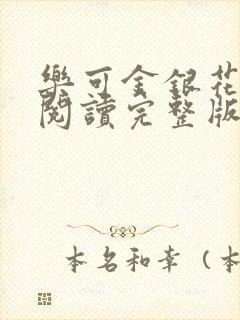 樂可金銀花
閱讀完整版
本名和幸（本